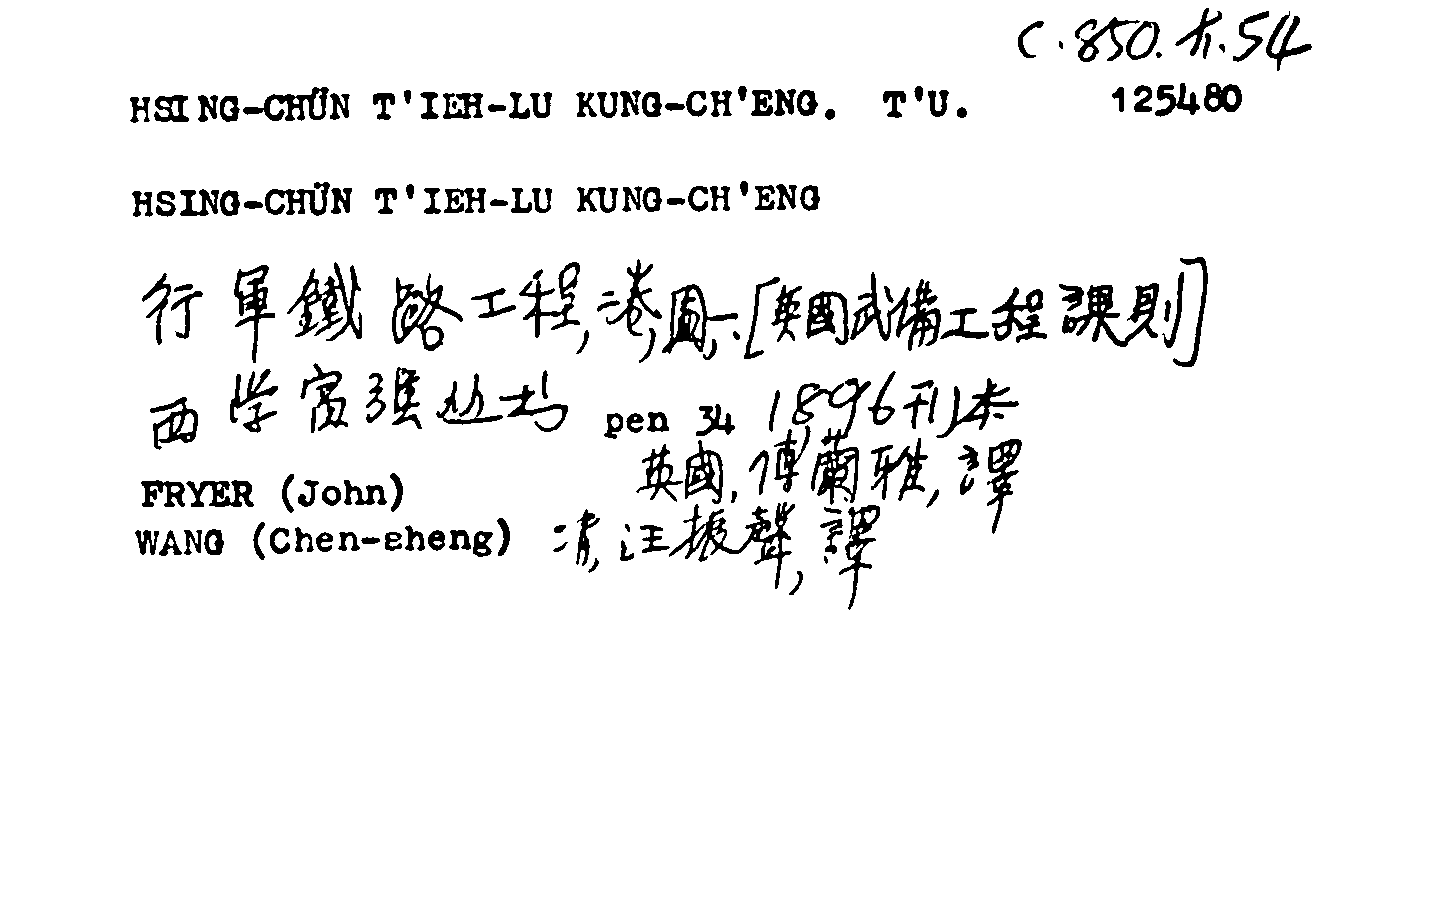 C.850.n.54
HSING-CHÜN T'IEH-LU KUNG-CH'ENG. T'U. 125480
HSING-CHÜN T'IEH-LU KUNG-CH'ENG
行軍鐵路工程, 圖, 一. [英國武備工程課則]
西学富强丛书 pen 34 1896刊本
FRYER (John) 英國, 傅蘭雅, 譯
WANG (Chen-sheng) 清, 汪振聲, 譯